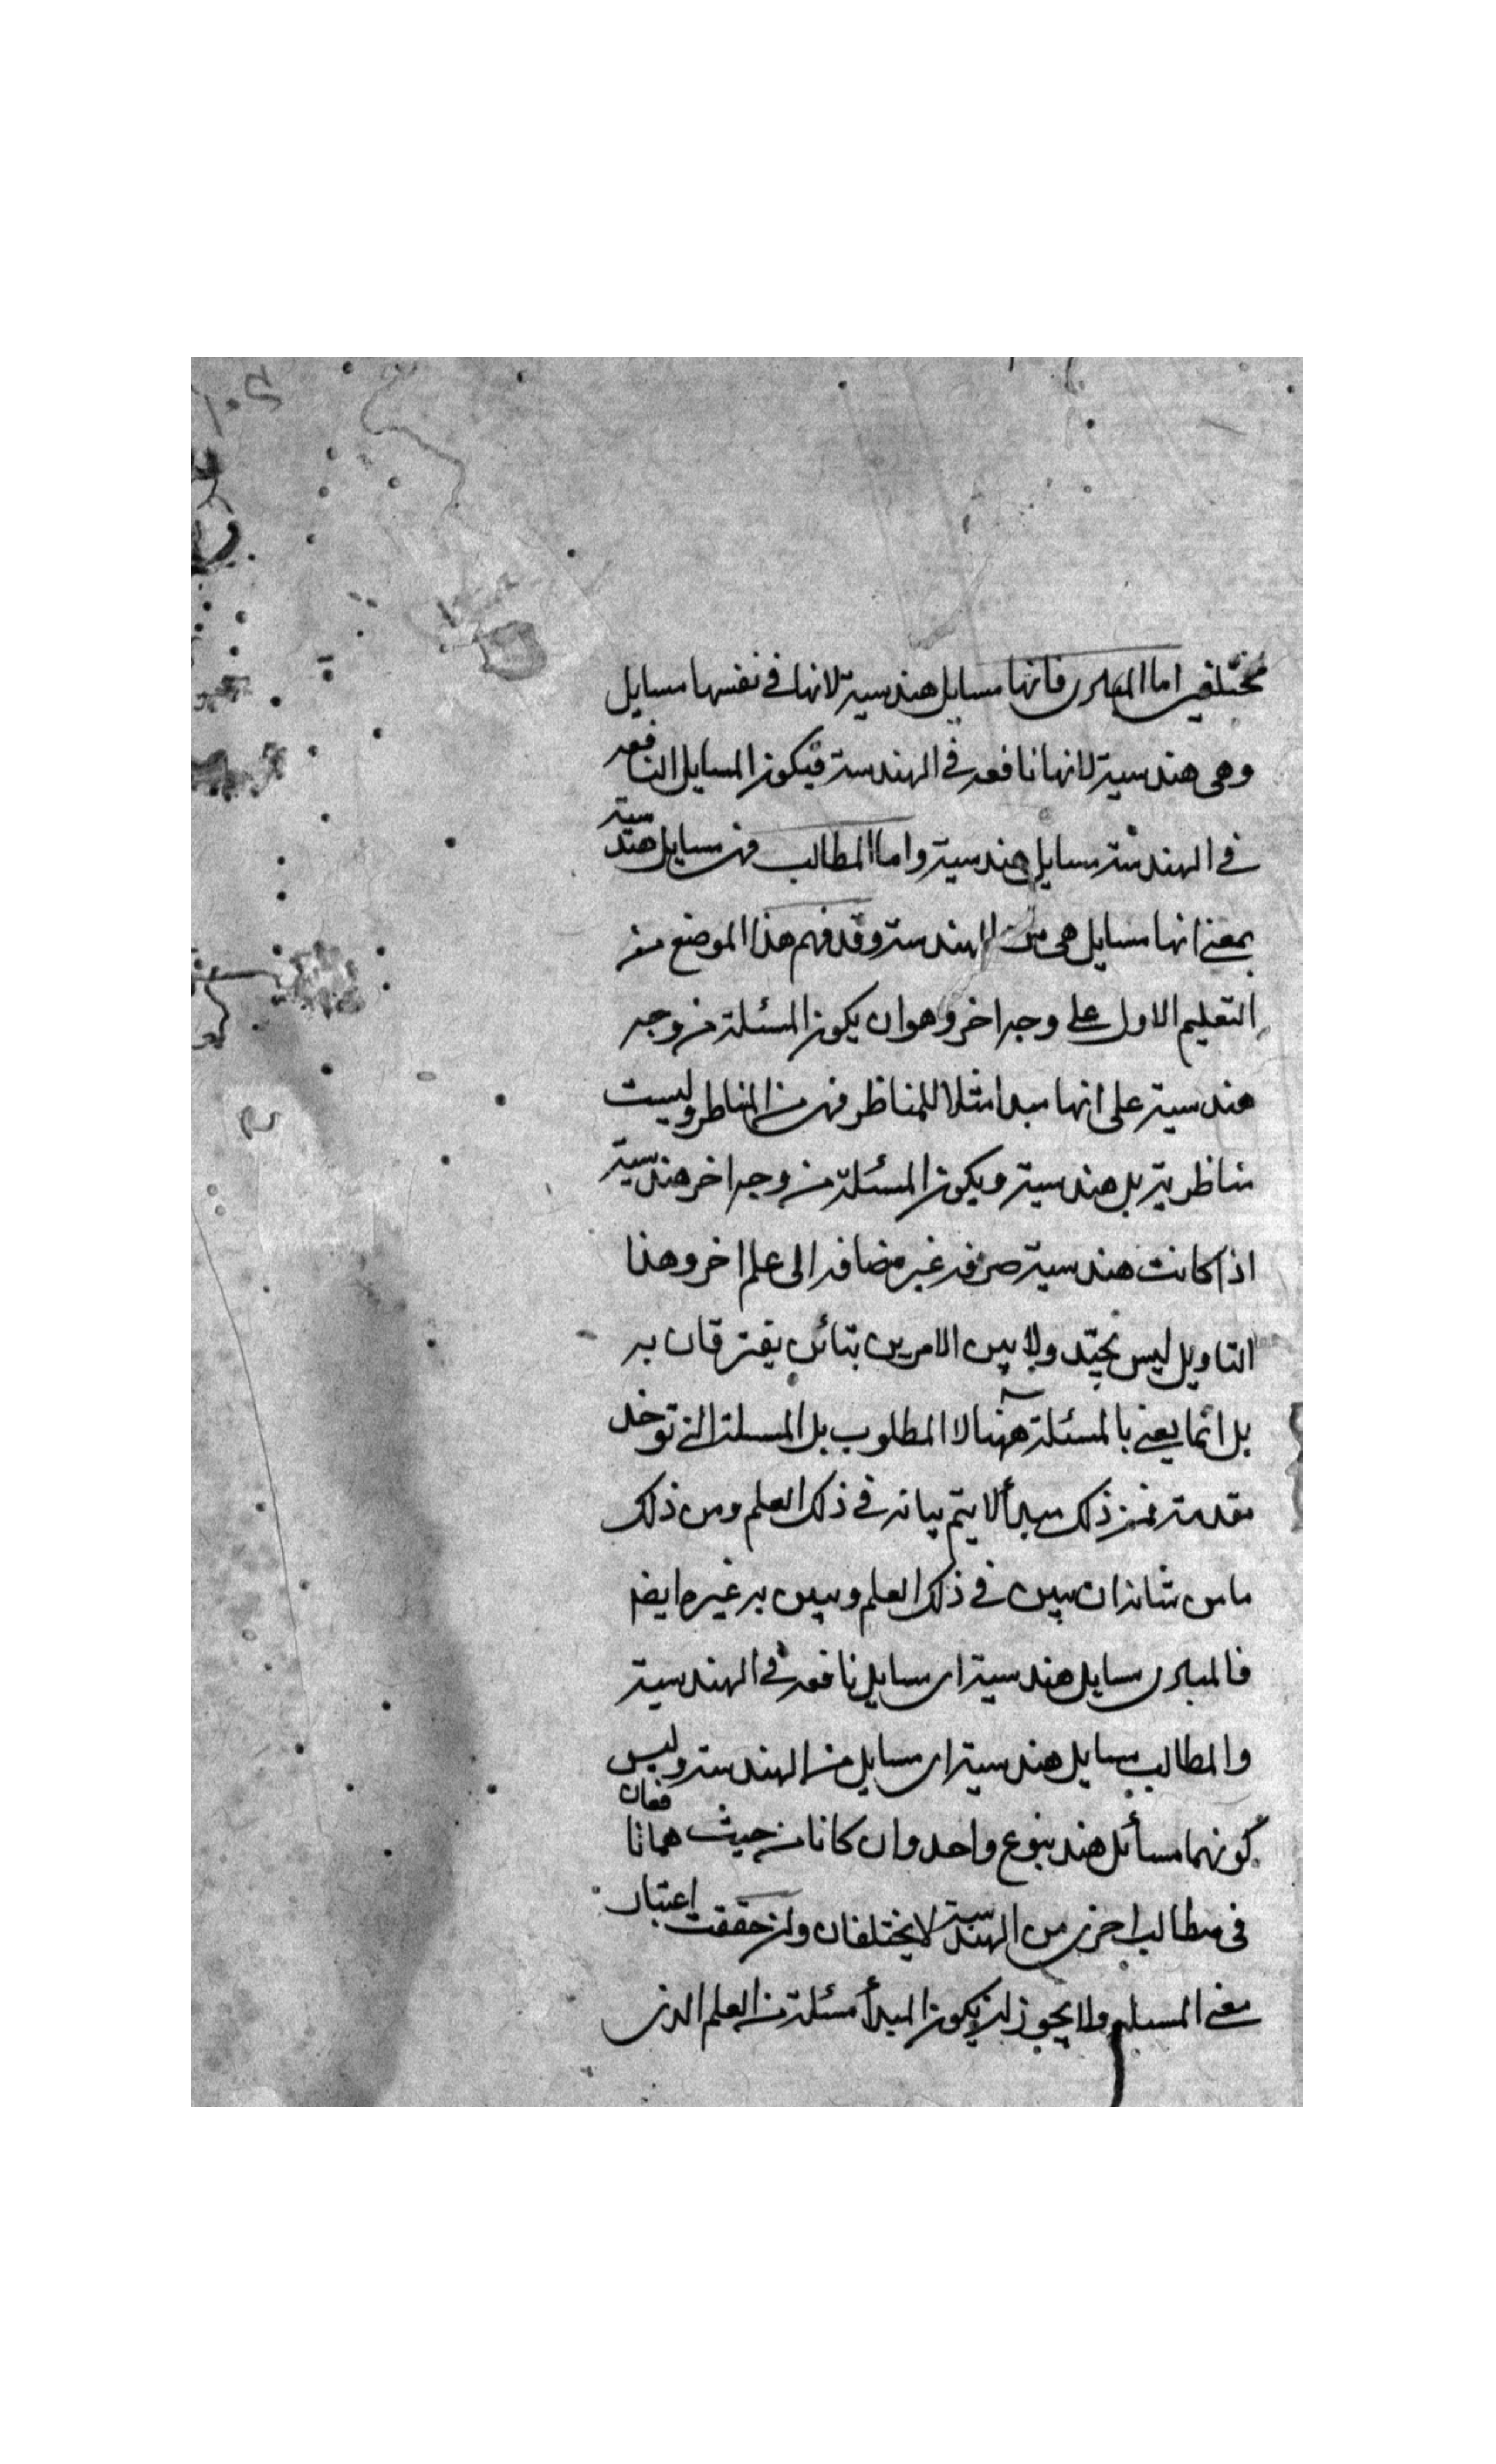 مختلفين اما المبادى فانها مسايل هندسية لانها في نفسها مسايل
وهى هندسية لانها نافعة في الهندسة فيكون المسايل النافعة
في الهندسة مسايل هندسية واما المطالب فهى مسايل هندسية
بمعنى انها مسايل هى من الهندسة وقد فهم هذا الموضع من
التعليم الاول على وجه اخر وهو ان يكون المسئلة من وجه
هندسية على انها مبدا مثلا للمناظر فهى من المناظر وليست
مناظرية بل هندسية ويكون المسئلة من وجه اخر هندسية
اذا كانت هندسية صرفة غير مضافة الى علم اخر وهذا
التاويل ليس بجيد ولا بين الامرين تباين يفترقان به
بل انما يعنى بالمسئلة ههنا لا المطلوب بل المسلة التى توخد
مقدمة فمن ذلك مبدأ لا يتم بيانه في ذلك العلم ومن ذلك
ما من شانه ان يبين في ذلك العلم ويبين به غيره ايضا
فالمبادى مسايل هندسية اى مسايل نافعة في الهندسية
والمطالب مسايل هندسية اى مسايل من الهندسة وليس
كونهما مسائل هند بنوع واحد وان كانا من حيث هما نافعان
فى مطالب اخرى من الهندسة لا يختلفان وان حققت اعتبار
معنى المسئلة ولا يجوز ان يكون المبدأ مسئلة من العلم الذى